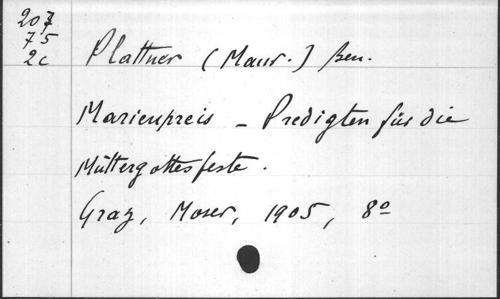 207
75
2c
Plattner (Maur.) Ben.
Marienpreis - Predigten für die
Müttergottesfeste.
Graz, Moser, 1905, 8º